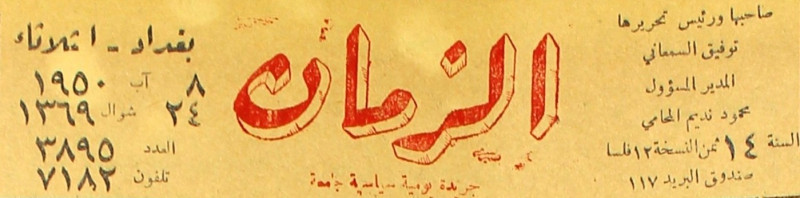 صاحبها ورئيس تحريرها
توفيق السمعاني
المدير المسؤول
محمود نديم المحامي
السنة ١٤ ثمن النسخة ١٢ فلسا
صندوق البريد ١١٧
الزمان
جريدة يومية سياسية جامعة
بغداد - الثلاثاء
٨ آب ١٩٥٠
٢٤ شوال ١٣٦٩
العدد ٣٨٩٥
تلفون ٧١٨٢